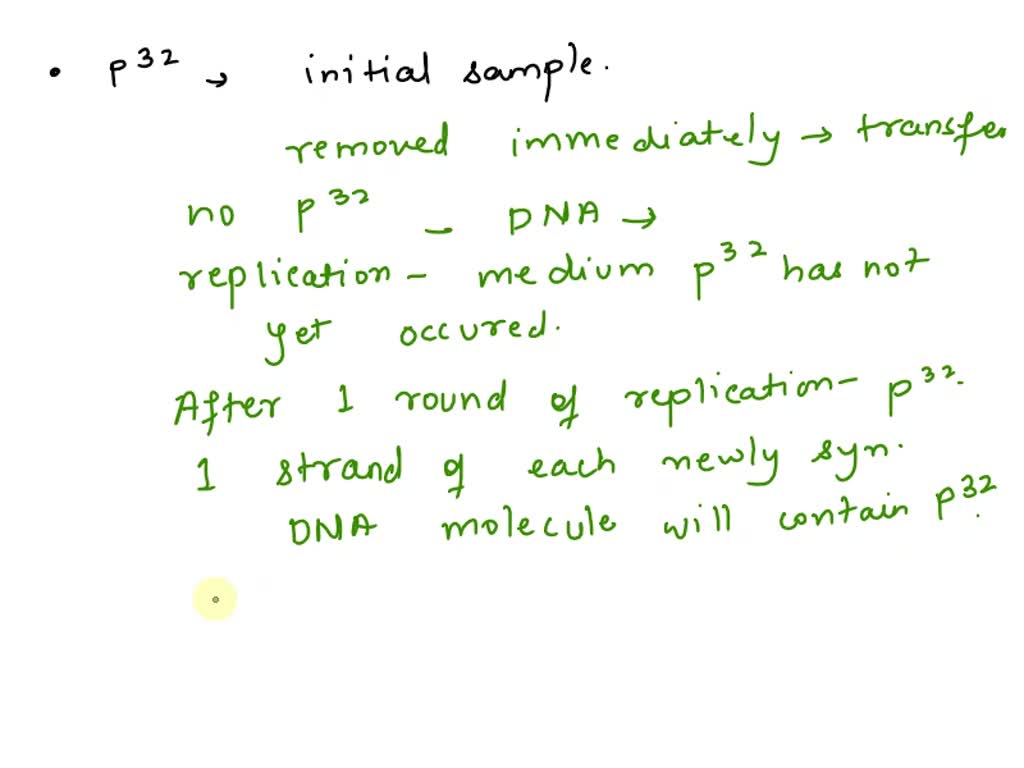 • P32 → initial sample.
removed immediately → transfer
no P32 - DNA →
replication - medium P32 has not
yet occured.
After 1 round of replication - P32.
1 strand of each newly syn.
DNA molecule will contain P32.